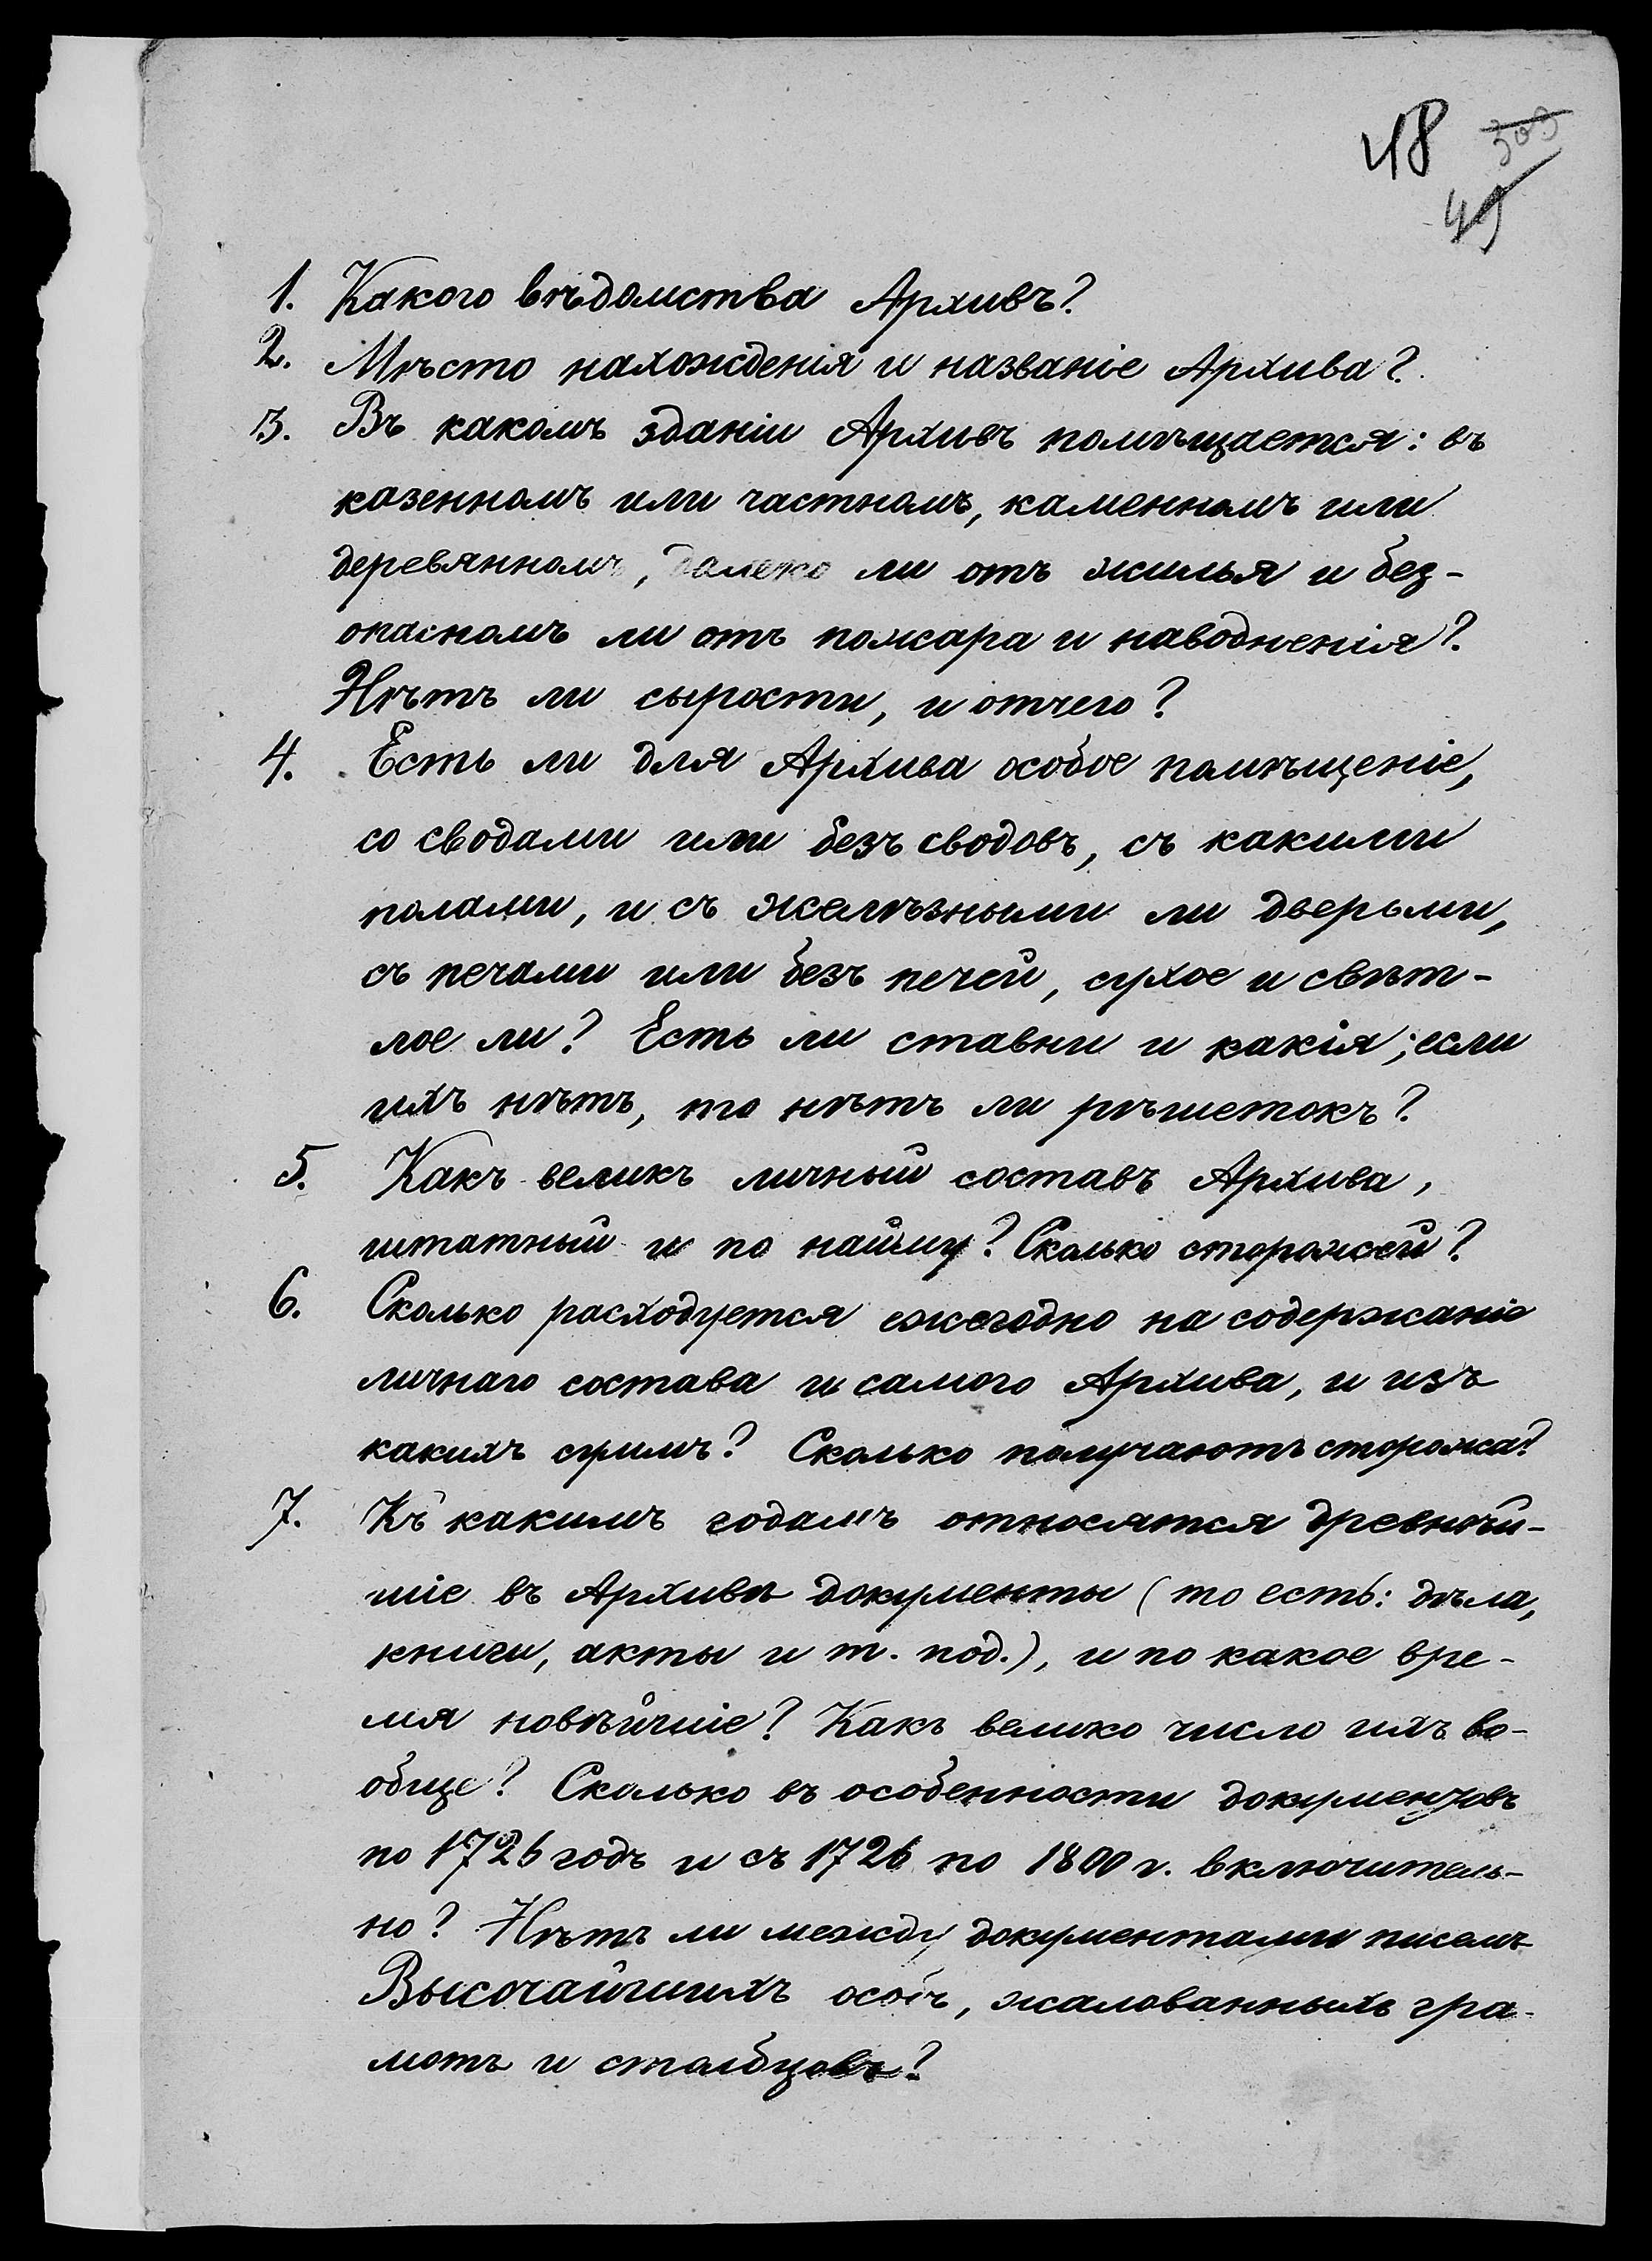 48 309
49
1. Какого вѣдомства Архивъ?
2. Мѣсто нахожденія и названіе Архива?
3. Въ какомъ зданіи Архивъ помѣщается: въ
казенномъ или частномъ, каменномъ или
деревянномъ, далеко ли отъ жилья и без-
опасномъ ли отъ пожара и наводненія?
Нѣтъ ли сырости, и отчего?
4. Есть ли для Архива особое помѣщеніе,
со сводами или безъ сводовъ, съ какими
полами, и съ желѣзными ли дверьми,
съ печами или безъ печей, сухое и свѣт-
лое ли? Есть ли ставни и какія; если
ихъ нѣтъ, то нѣтъ ли рѣшетокъ?
5. Какъ великъ личный составъ Архива,
штатный и по найму? Сколько сторожей?
6. Сколько расходуется ежегодно на содержаніе
личнаго состава и самого Архива, и изъ
какихъ суммъ? Сколько получаютъ сторожа?
7. Къ какимъ годамъ относятся древнѣй-
шіе въ Архивѣ документы (то есть: дѣла,
книги, акты и т. под.), и по какое вре-
мя новѣйшіе? Какъ велико число ихъ во-
обще? Сколько въ особенности документовъ
по 1726 годъ и съ 1726 по 1800 г. включитель-
но? Нѣтъ ли между документами писемъ
Высочайшихъ особъ, жалованныхъ гра-
мотъ и столбцовъ?